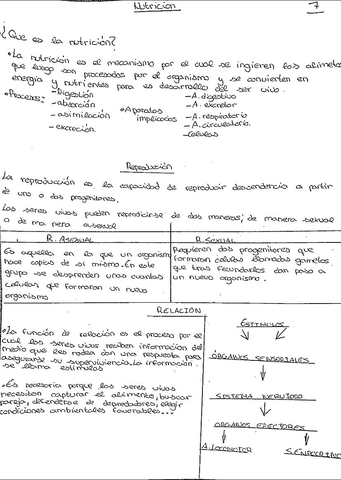 Nutrición
7
¿Que es la nutrición?
•La nutrición es el mecanismo por el cual se ingieren los alimetos
que luego son procesados por el organismo y se convierten en
energía y nutrientes para es desarrollo del ser vivo.
•Procesos: -Digestión
-absorción
-asimilación
-excreción.
•Aparatos implicados
-A.digestivo
-A. excretor
-A. respiratorio
-A. circulatorio.
-Celulas
Reproducción
La reproducción es la capacidad de reproducir descendencia a partir
de uno o dos progenitores.
Los seres vivos pueden reproducirse de dos maneras; de manera sexual
o de manera asexual
R. ASEXUAL
Es aquella en la que un organism
hace copias de sí mismo. En este
grupo se desprenden unas cuantas
celulas, que formaran un nuevo
organismo
R. SEXUAL
Requieren dos progenitores que
formaran células llamadas gametos
que tras fecundarlos dan paso a
un nuevo organismo.
RELACION
•La función de relación es el proceso por el
cual los seres vivos reciben informacion del
medio que les rodea dan una respuesta para
asegurarse su supervivencia. La información
se llama estímulos
•Es necesaria porque los seres vivos
necesitan capturar el alimento, buscar
pareja, defenderse de depredadores, elegir
condiciones ambientales favorables...
ESTIMULOS
ÓRGANOS SENSORIALES
SISTEMA NERVIOSO
ORGANOS EFECTORES
A.LOCOMOTOR
S.ENDOCRINO